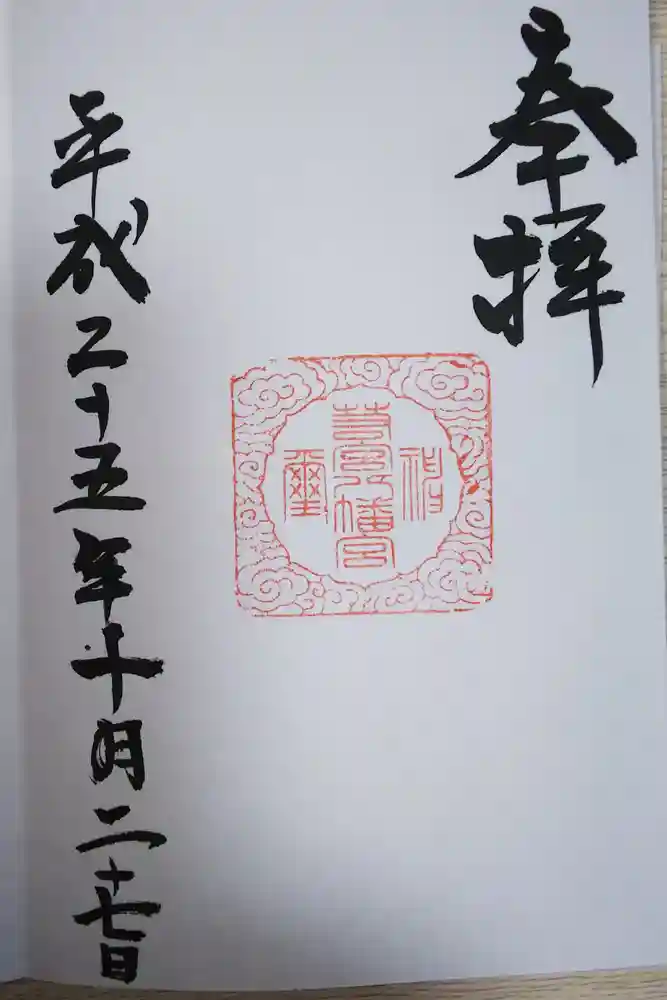 奉拝
若宮八幡宮
神璽
平成二十五年十月二十七日